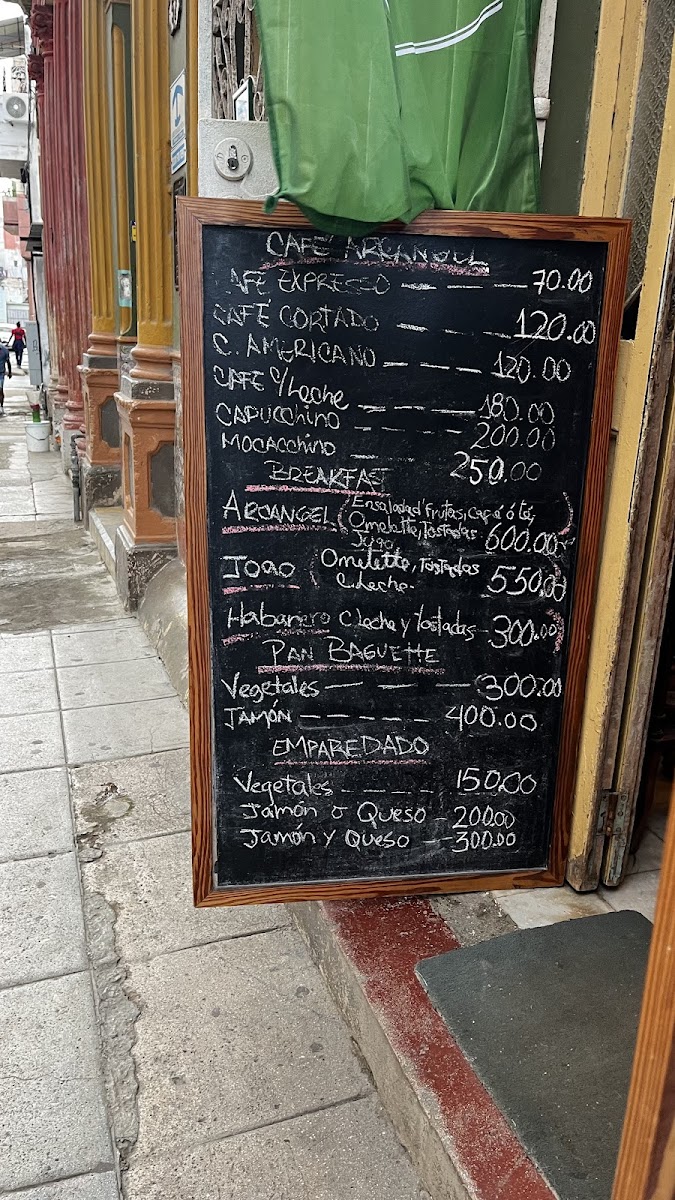 CAFÉ ARCANGEL
AFE EXPRESSO 70.00
CAFÉ CORTADO 120.00
C. AMERICANO 120.00
CAFE c/Leche 180.00
CAPUCChiNO 200.00
MOCACChiNO 250.00
BREAKFAST
ARCANGEL (Ensalada d' Frutas, Café ó té,
Omelette, Tostadas
Jugo 600.00
JOAO (Omelette, Tostadas
C Leche. 550.00
Habanero C Leche y Tostadas 300.00
PAN BAGUETTE
Vegetales 300.00
JAMÓN 400.00
EMPAREDADO
Vegetales 150.00
Jamón o Queso 200.00
Jamón Y Queso 300.00